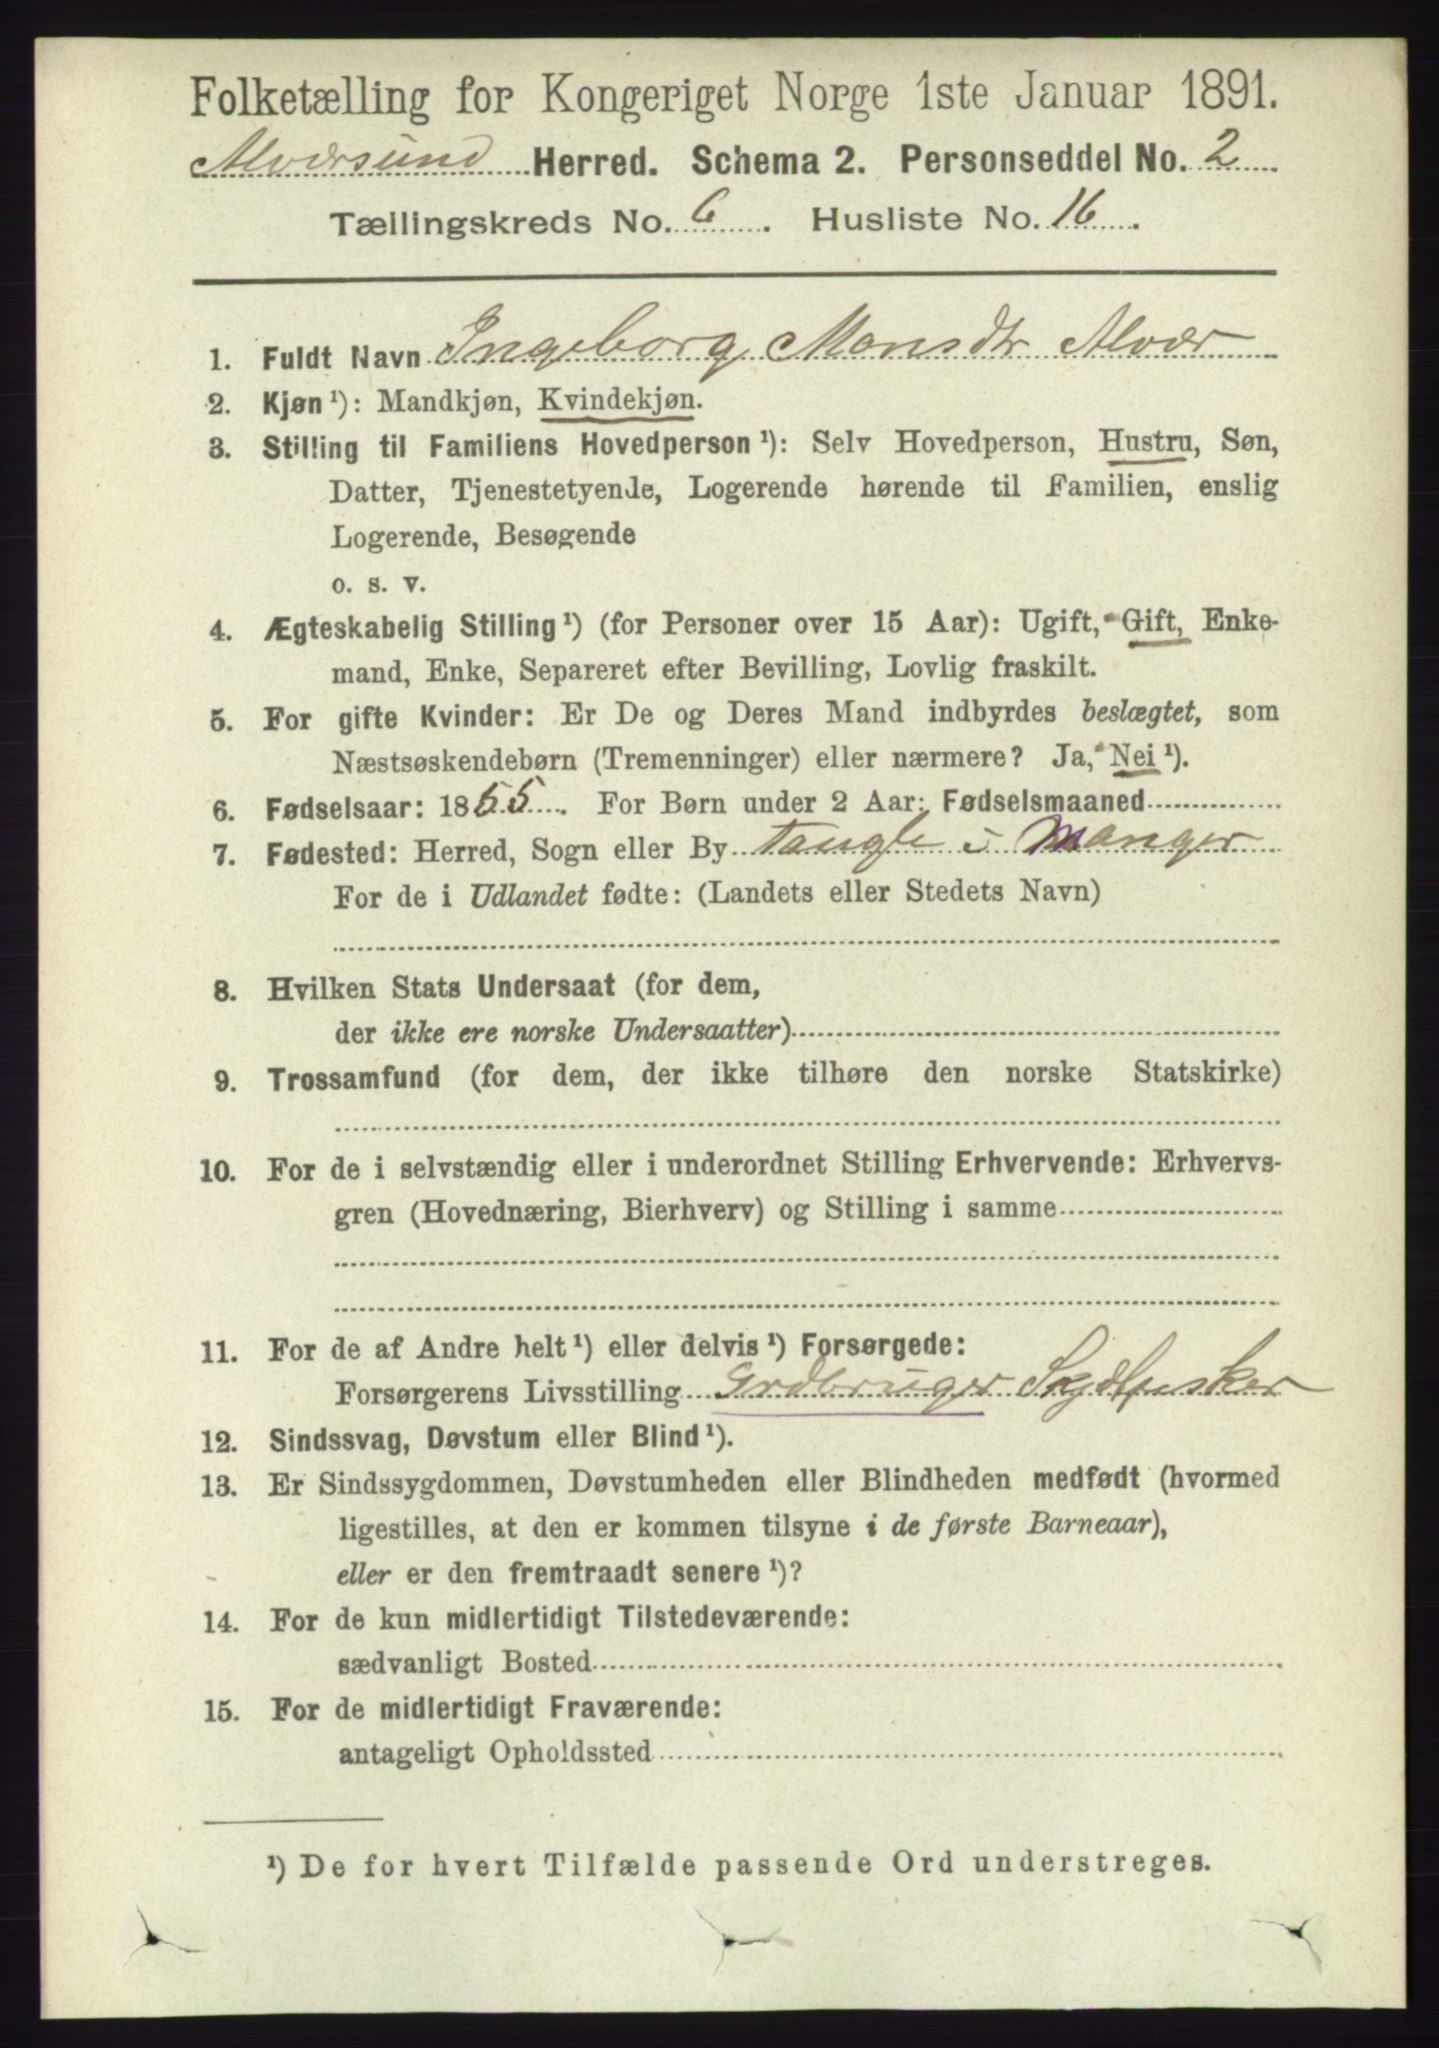 Folketælling for Kongeriget Norge 1ste Januar 1891.
Alversund Herred. Schema 2. Personseddel No. 2
Tællingskreds No. 6. Husliste No. 16.
1. Fuldt Navn Ingeborg Monsdtr Alvær
2. Kjøn ¹): Mandkjøn, Kvindekjøn.
3. Stilling til Familiens Hovedperson ¹): Selv Hovedperson, Hustru, Søn,
Datter, Tjenestetyende, Logerende hørende til Familien, enslig
Logerende, Besøgende
o. s. v.
4. Ægteskabelig Stilling ¹) (for Personer over 15 Aar): Ugift, Gift, Enke-
mand, Enke, Separeret efter Bevilling, Lovlig fraskilt.
5. For gifte Kvinder: Er De og Deres Mand indbyrdes beslægtet, som
Næstsøskendebørn (Tremenninger) eller nærmere? Ja, Nei ¹).
6. Fødselsaar: 1855. For Børn under 2 Aar: Fødselsmaaned
7. Fødested: Herred, Sogn eller By i Manger
For de i Udlandet fødte: (Landets eller Stedets Navn)
8. Hvilken Stats Undersaat (for dem,
der ikke ere norske Undersaatter)
9. Trossamfund (for dem, der ikke tilhøre den norske Statskirke)
10. For de i selvstændig eller i underordnet Stilling Erhvervende: Erhvervs-
gren (Hovednæring, Bierhverv) og Stilling i samme
11. For de af Andre helt ¹) eller delvis ¹) Forsørgede:
Forsørgerens Livsstilling Grdbruger
12. Sindssvag, Døvstum eller Blind ¹).
13. Er Sindssygdommen, Døvstumheden eller Blindheden medfødt (hvormed
ligestilles, at den er kommen tilsyne i de første Barneaar),
eller er den fremtraadt senere ¹)?
14. For de kun midlertidigt Tilstedeværende:
sædvanligt Bosted
15. For de midlertidigt Fraværende:
antageligt Opholdssted
¹) De for hvert Tilfælde passende Ord understreges.